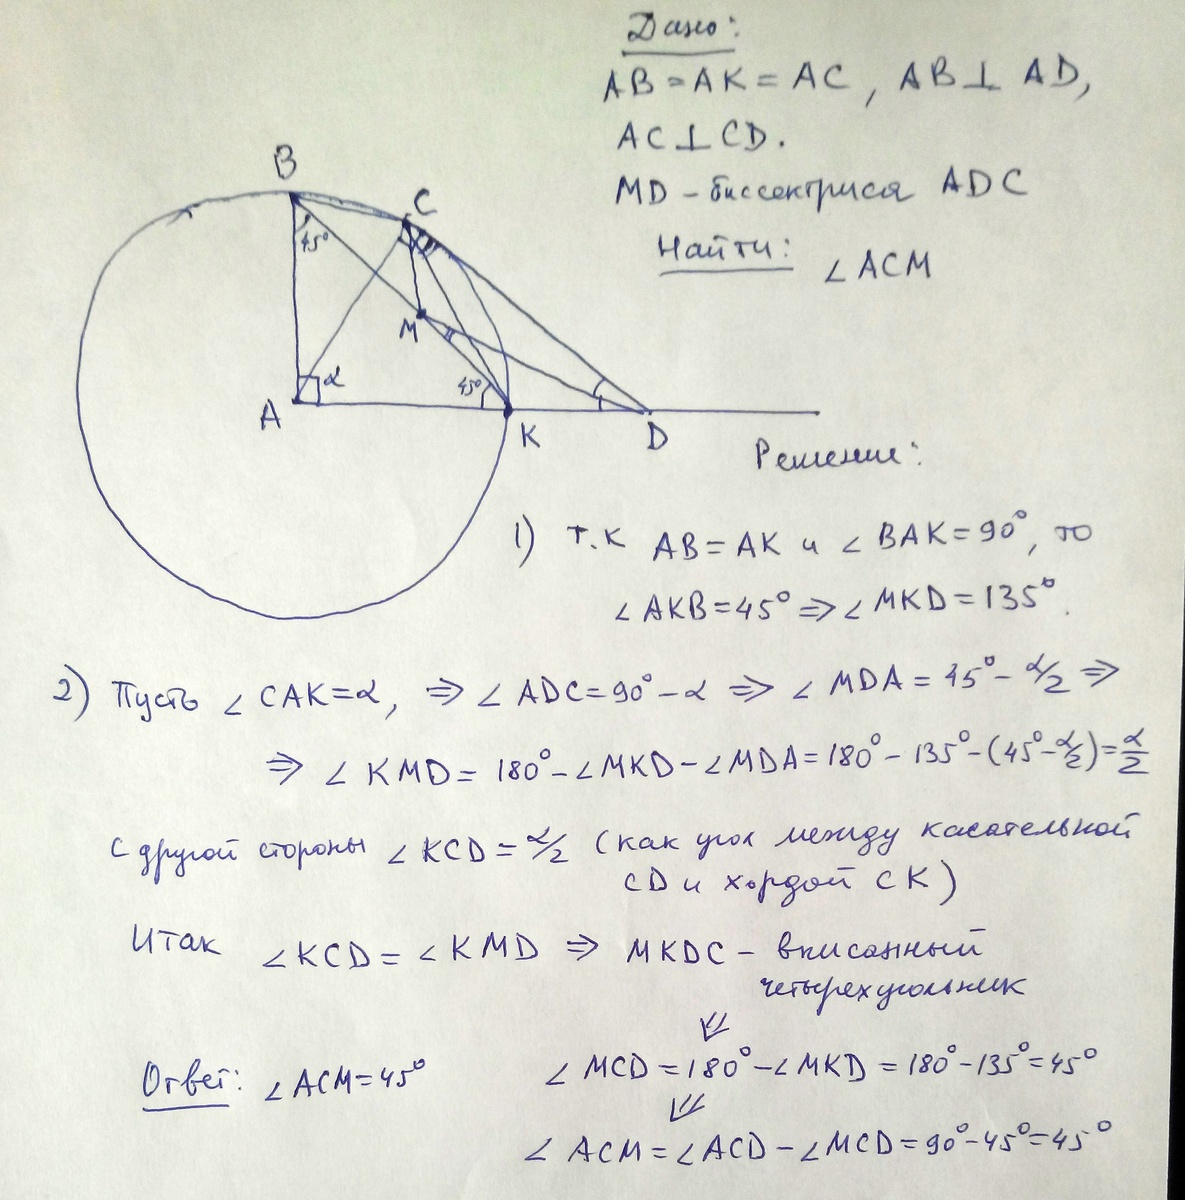 Дано:
AB = AK = AC, AB ⊥ AD,
AC ⊥ CD.
MD – биссектриса ADC
Найти: ∠ACM
B
C
45°
M
α
45°
A
K
D
Решение:
1) Т.к AB = AK и ∠BAK = 90°, то
∠AKB = 45° ⇒ ∠MKD = 135°.
2) Пусть ∠CAK = α, ⇒ ∠ADC = 90° – α ⇒ ∠MDA = 45° – α/2 ⇒
⇒ ∠KMD = 180° – ∠MKD – ∠MDA = 180° – 135° – (45° – α/2) = α/2
С другой стороны ∠KCD = α/2 (как угол между касательной
CD и хордой CK)
Итак ∠KCD = ∠KMD ⇒ MKDC – вписанный
четырехугольник
⇓
Ответ: ∠ACM = 45° ∠MCD = 180° – ∠MKD = 180° – 135° = 45°
⇓
∠ACM = ∠ACD – ∠MCD = 90° – 45° = 45°